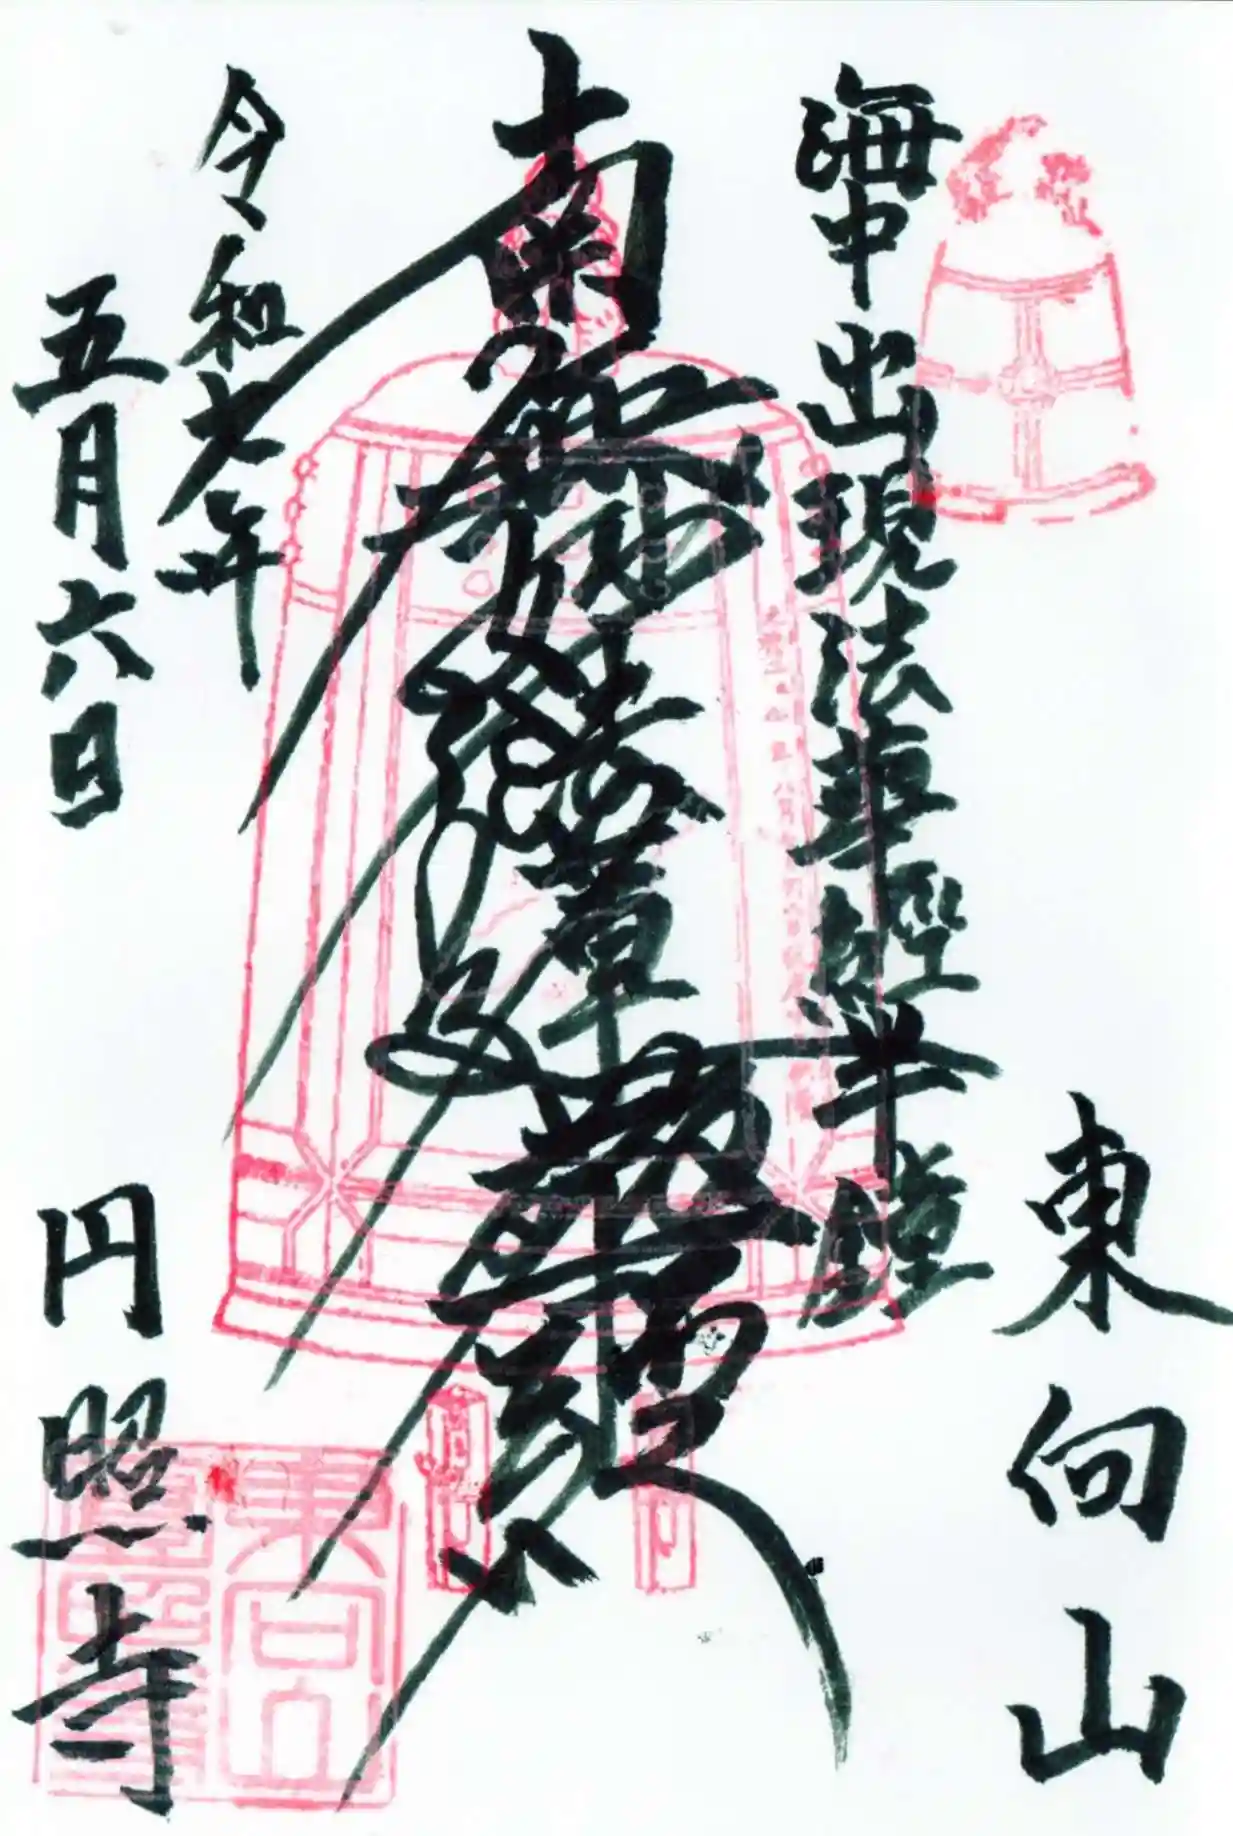 海中出現法華経半鐘
東向山
南無妙法蓮華経
令和七年
五月六日
円照寺